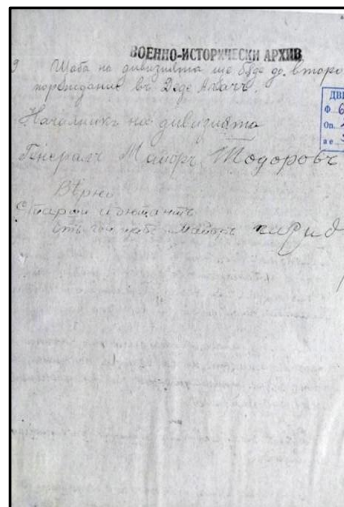 ВОЕННО-ИСТОРИЧЕСКИ АРХИВ
9 Щаба на дивизията ще бъде до второ
нареждание въ Деде Агачъ.
ДВИ
Ф. 6
Оп.
а е.
Началникъ на дивизията
Генералъ Майоръ Тодоровъ
Вѣрно
Старши Адютантъ
Отъ Майоръ